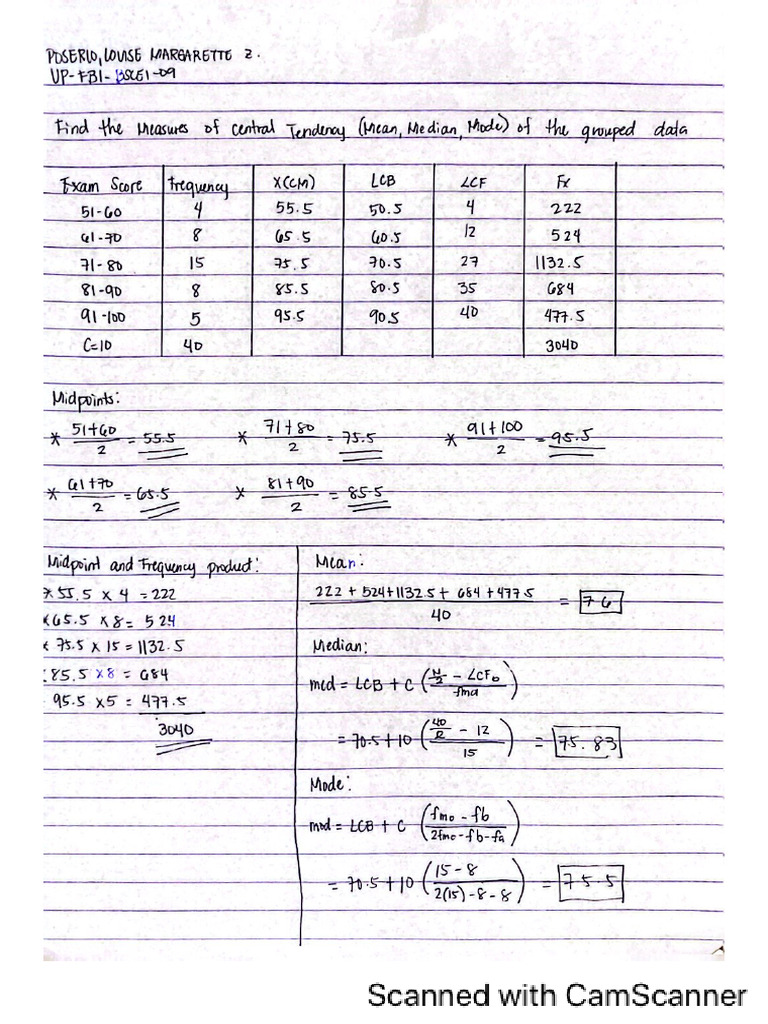 POSERIO, LOUISE MARGARETTE Z.
UP-FB1-BSCE1-09
Find the Measures of Central Tendency (Mean, Median, Mode) of the grouped data
Exam Score Frequency X(CM) LCB <CF Fx
51-60 4 55.5 50.5 4 222
61-70 8 65.5 60.5 12 524
71-80 15 75.5 70.5 27 1132.5
81-90 8 85.5 80.5 35 684
91-100 5 95.5 90.5 40 477.5
C=10 40 3040
Midpoints:
* 51+60/2 = 55.5 * 71+80/2 = 75.5 * 91+100/2 = 95.5
* 61+70/2 = 65.5 * 81+90/2 = 85.5
Midpoint and Frequency product:
* 55.5 x 4 = 222
* 65.5 x 8 = 524
* 75.5 x 15 = 1132.5
* 85.5 x 8 = 684
95.5 x 5 = 477.5
3040
Mean:
222 + 524 + 1132.5 + 684 + 477.5 / 40 = 76
Median:
med = LCB + C (N/2 - <CFb / fmd)
= 70.5 + 10 (40/2 - 12 / 15) = 75.83
Mode:
mod = LCB + C (fmo - fb / 2fmo - fb - fa)
= 70.5 + 10 (15 - 8 / 2(15) - 8 - 8) = 75.5
Scanned with CamScanner